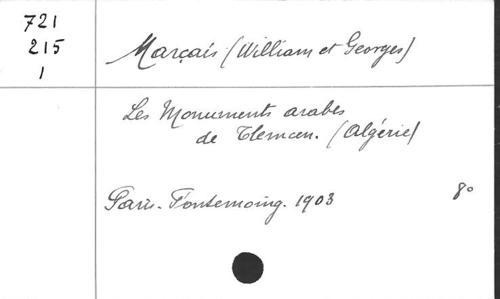 721
215
1
Marçais (William et Georges)
Les Monuments arabes
de Tlemcen. (Algérie)
Paris. Fontemoing. 1903 8°